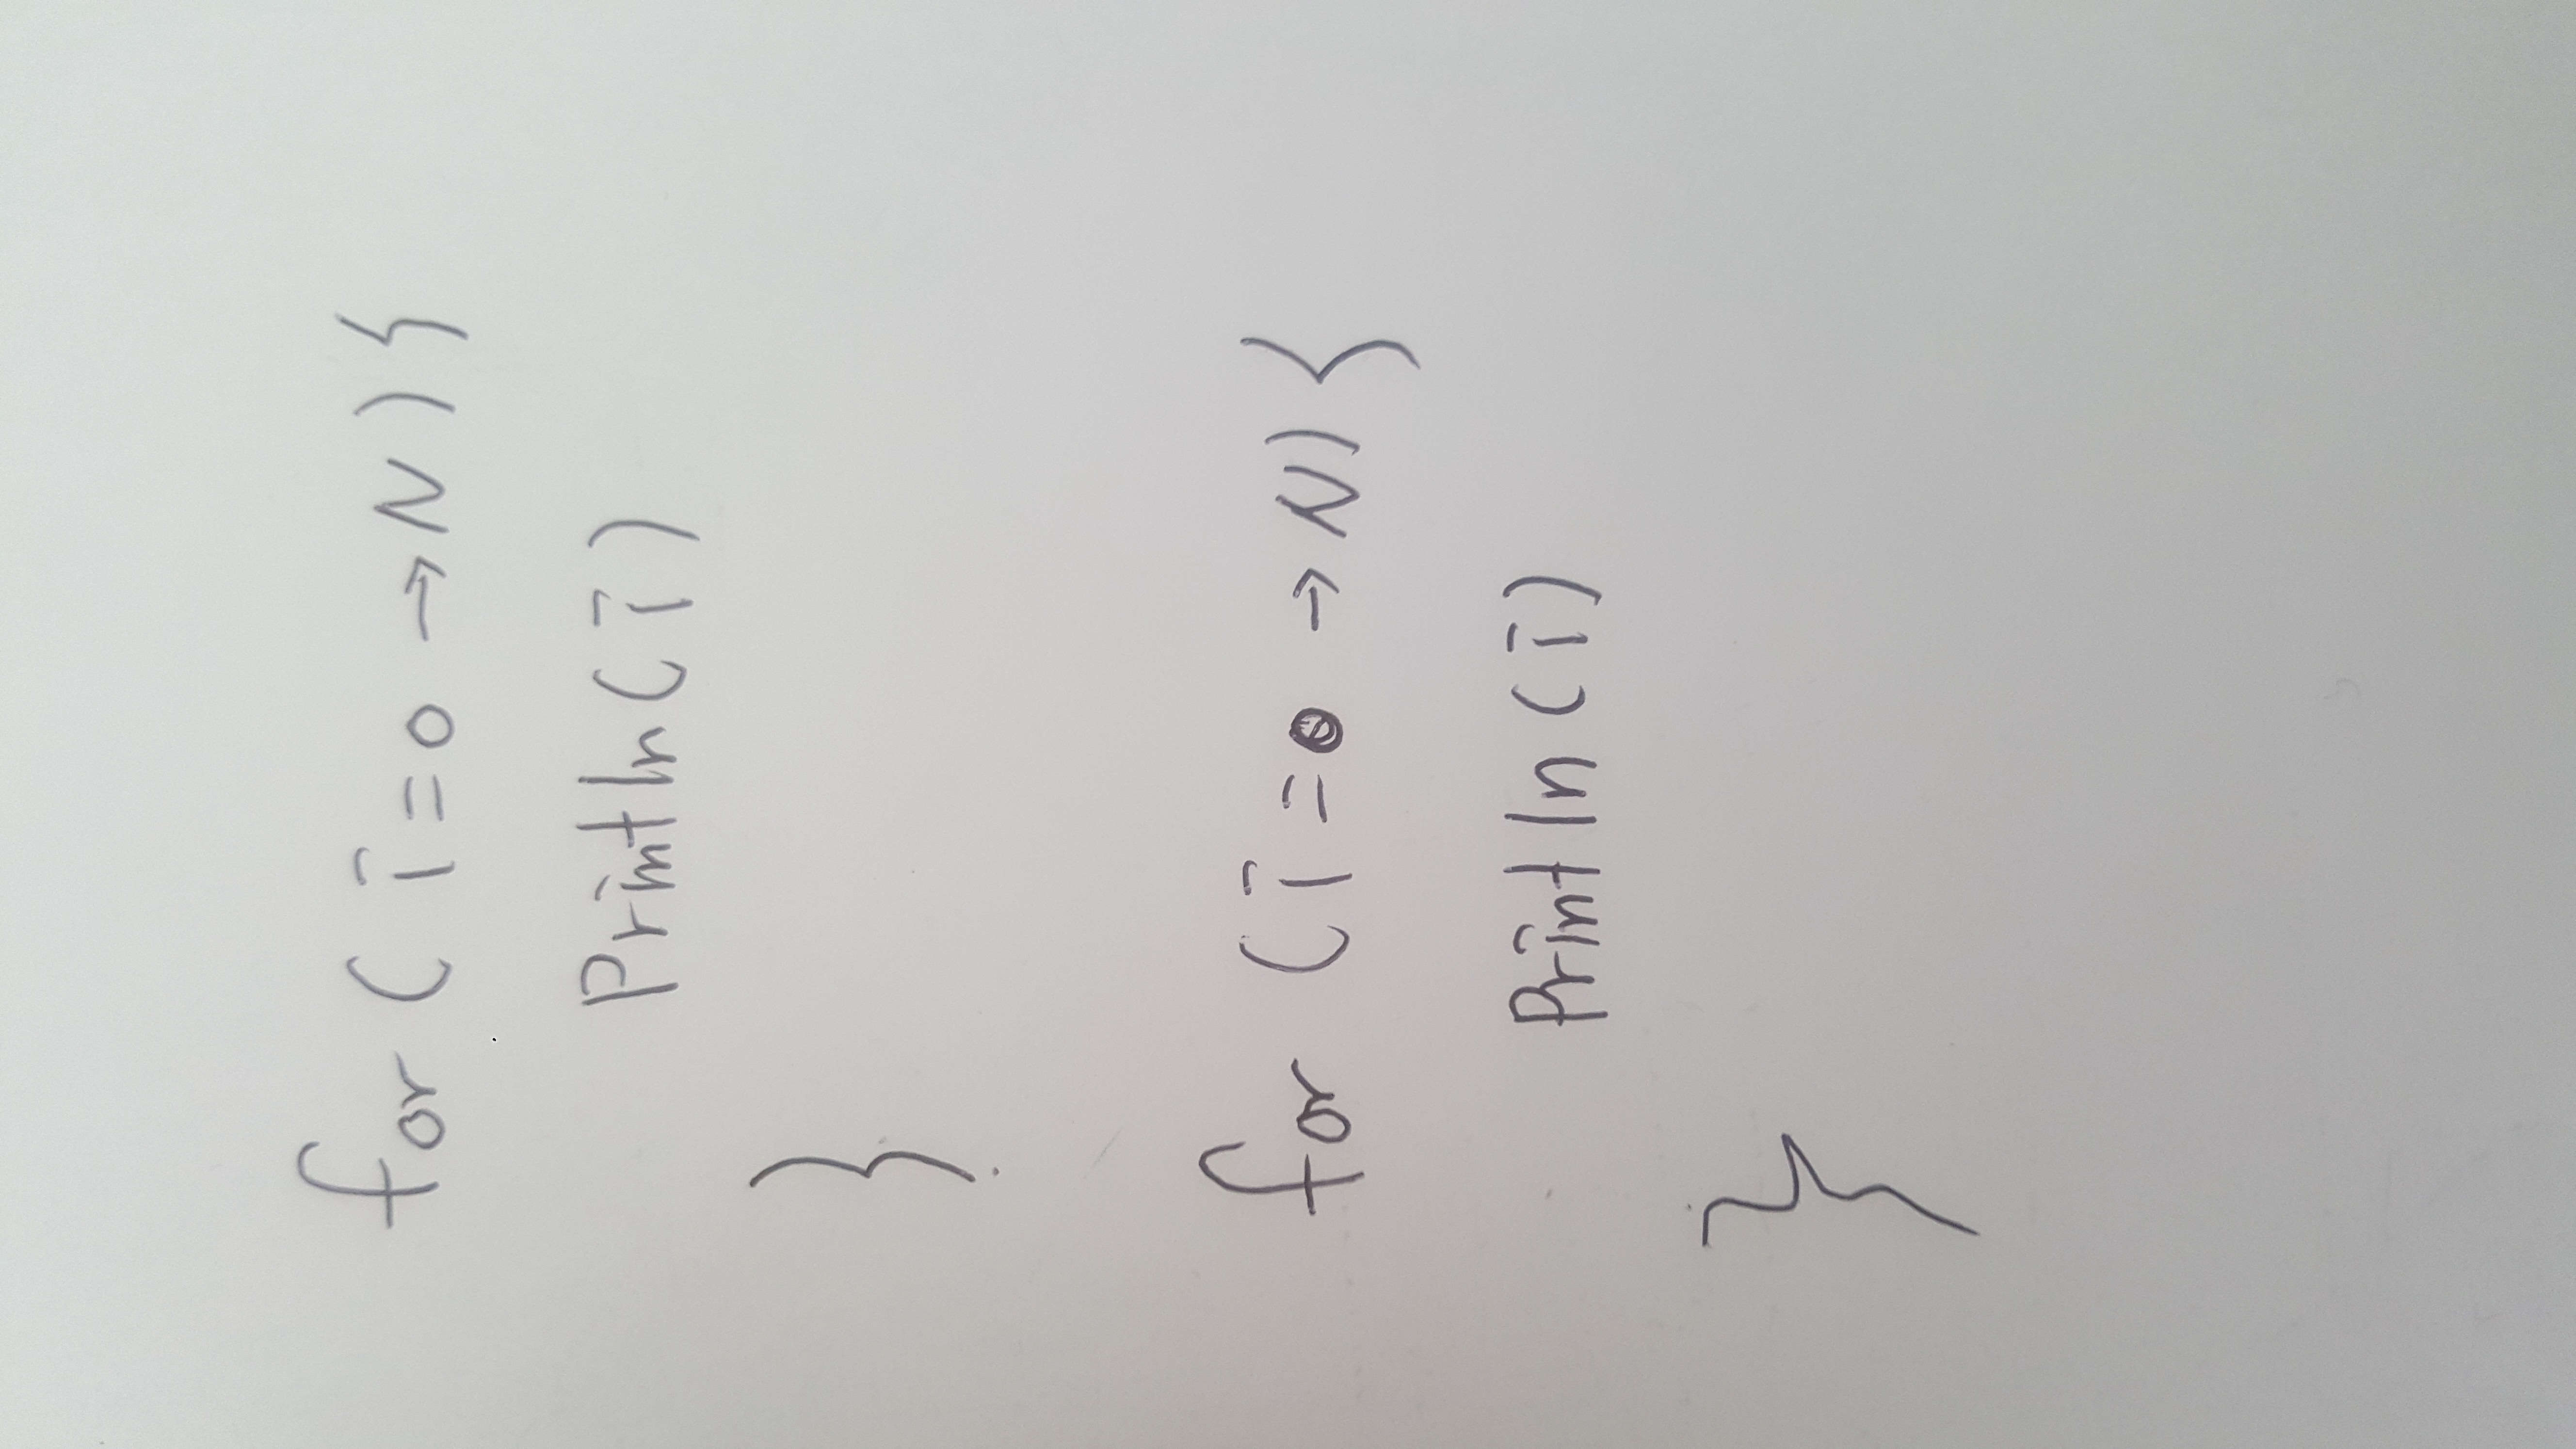 for ( i = 0 → N ) {
Println ( i )
}
for ( i = 0 → N ) {
Println ( i )
}